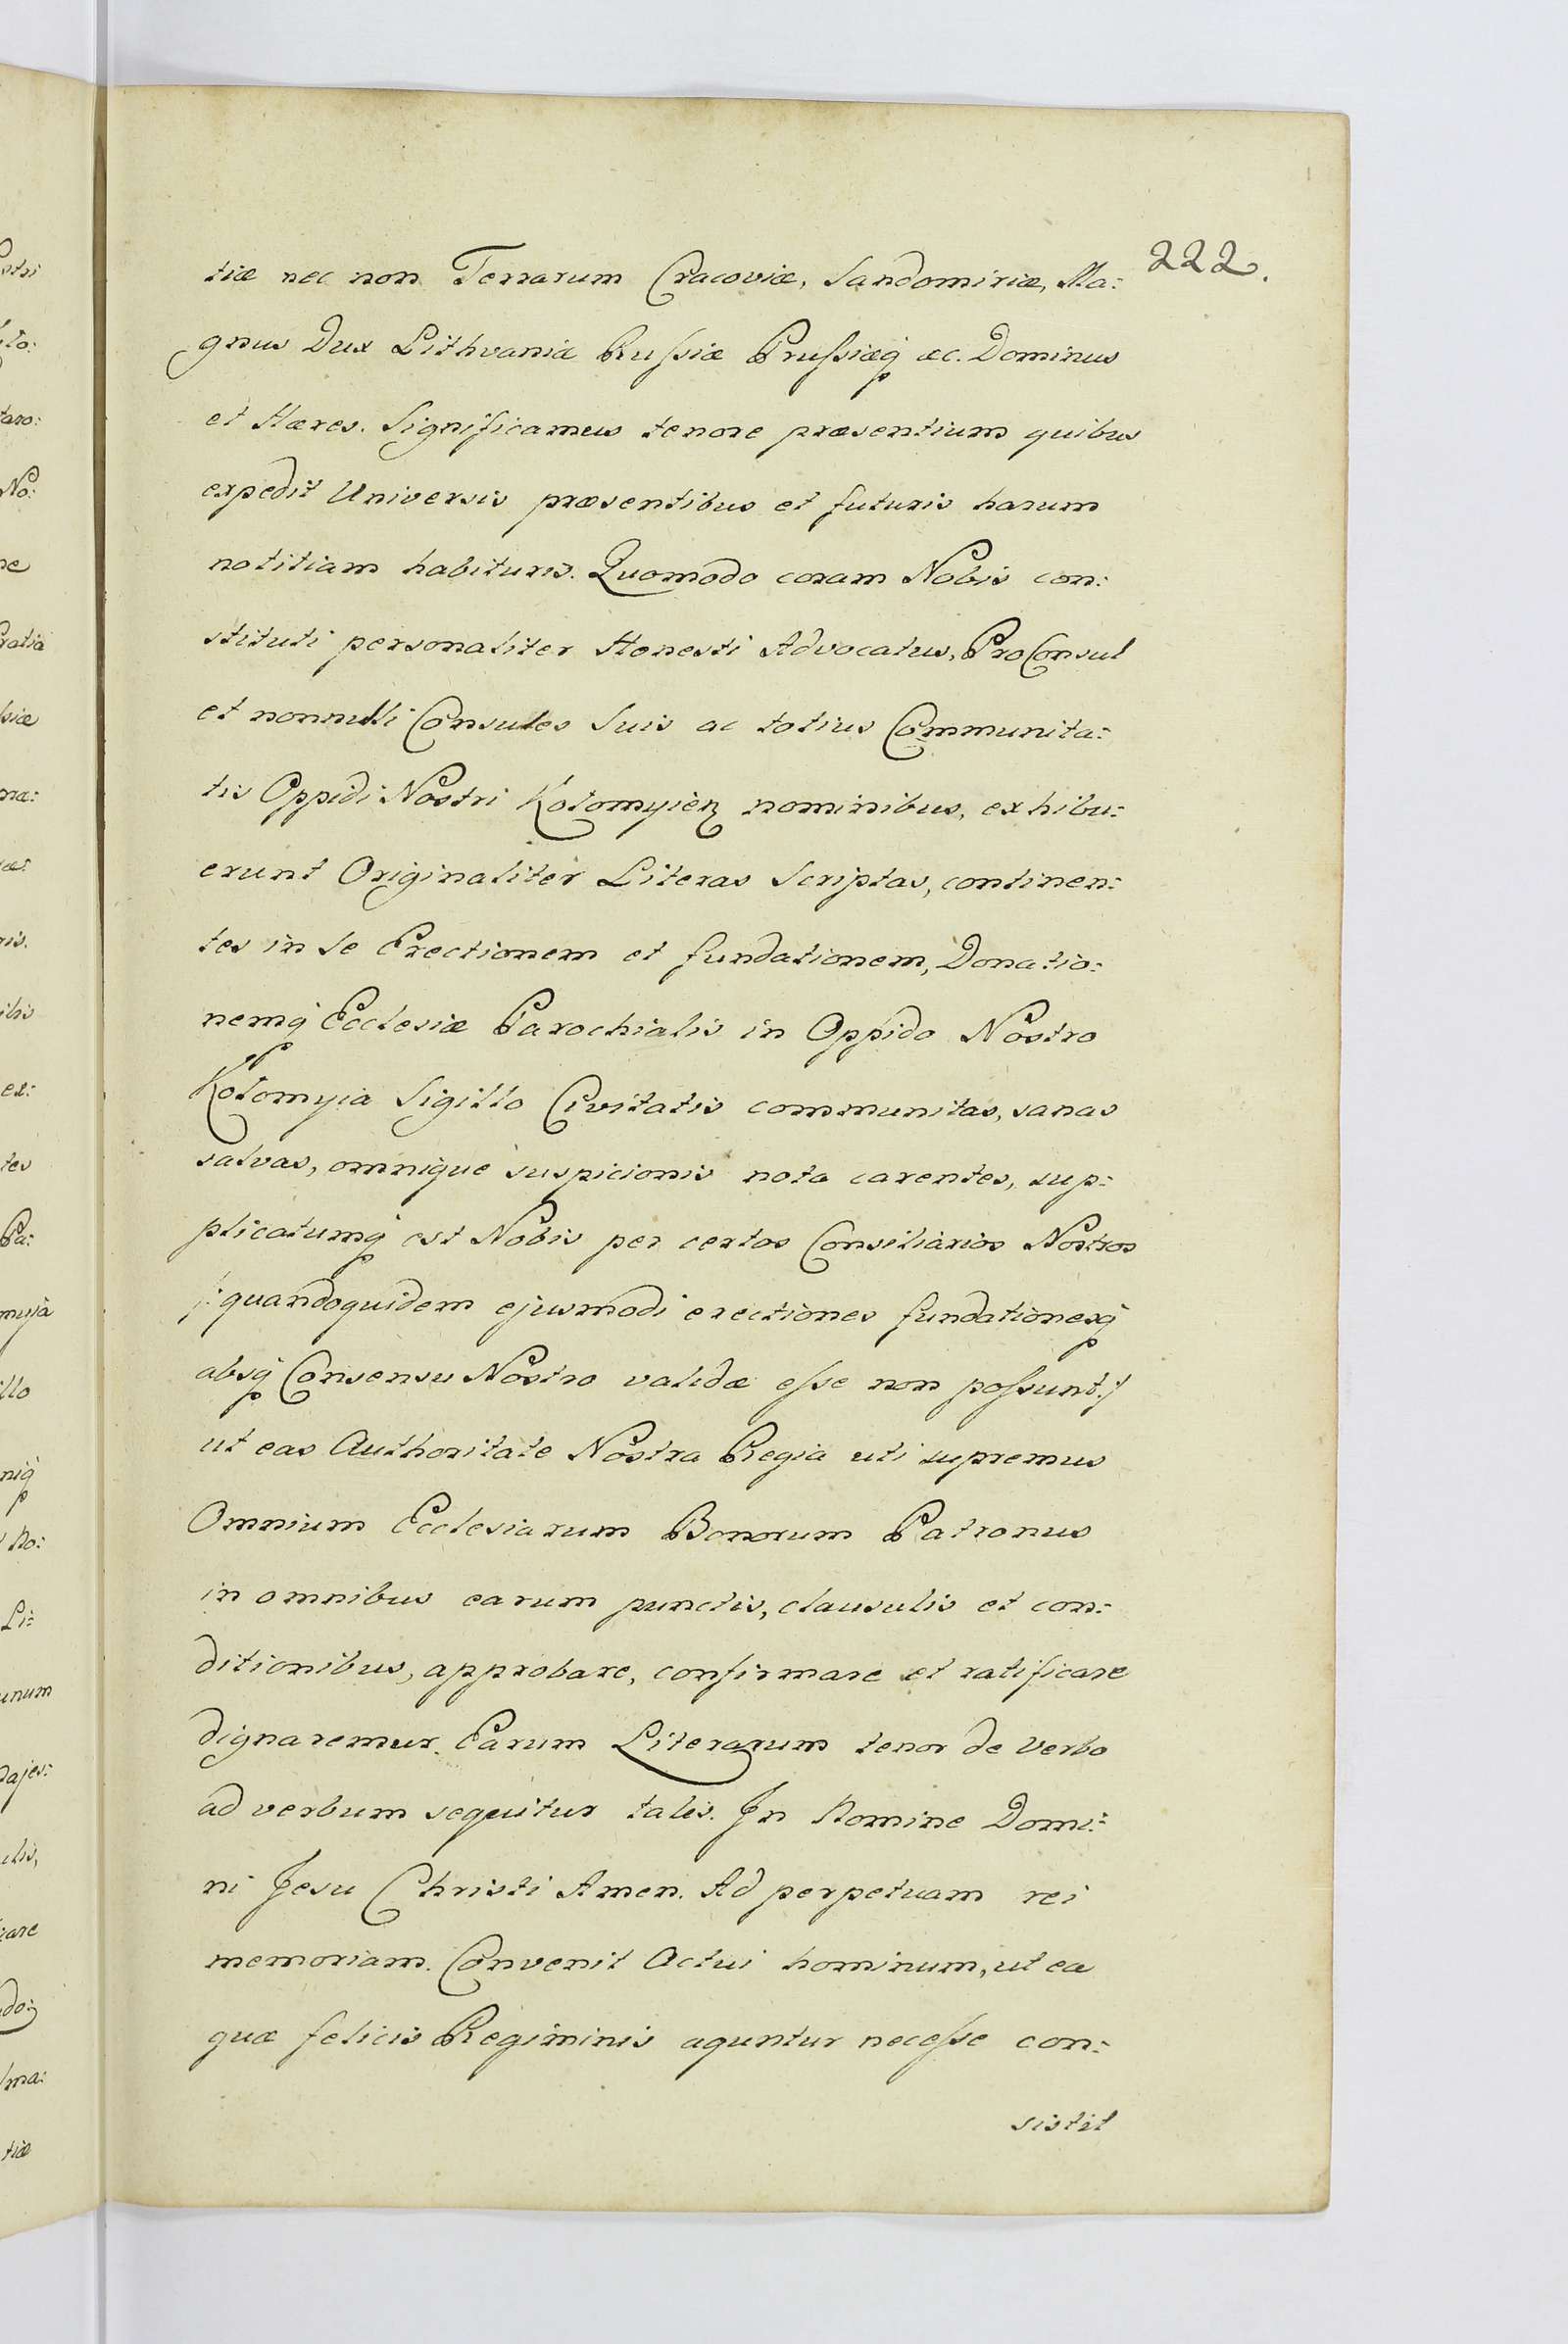 222.
tiæ nec non Terrarum Cracoviæ, Sandomiriæ, Ma:
gnus Dux Lithvaniæ Russiæ Prussiæq́ ac. Dominus
et Hæres. Significamus tenore præsentium quibus
expedit Universis præsentibus et futuris harum
notitiam habituris. Quomodo coram Nobis con:
stituti personaliter Honesti Advocatus, ProConsul
et nonnulli Consules Suis ac totius Communita:
tis Oppidi Nostri Kołomyien nominibus, exhibu:
erunt Originaliter Literas Scriptas, continen:
tes in Se Erectionem et fundationem, Donatio:
nemq́ Ecclesiæ Parochialis in Oppido Nostro
Kołomyia Sigillo Civitatis communitas, sanas
salvas, omnique suspicionis nota carentes, sup:
plicatumq́ est Nobis per certos Consiliarios Nostros
/: quandoquidem ejusmodi erectiones fundationesq́
absq́ Consensu Nostro validæ esse non possunt :/
ut eas Authoritate Nostra Regia uti supremus
Omnium Ecclesiarum Bonorum Patronus
in omnibus earum punctis, clausulis et con:
ditionibus, approbare, confirmare et ratificare
dignaremur. Earum Literarum tenor de verbo
ad verbum sequitur talis. In Nomine Domi:
ni Jesu Christi Amen. Ad perpetuam rei
memoriam. Convenit Actui hominum, ut ea
quæ felicis Regiminis aguntur necesse con:
sistit